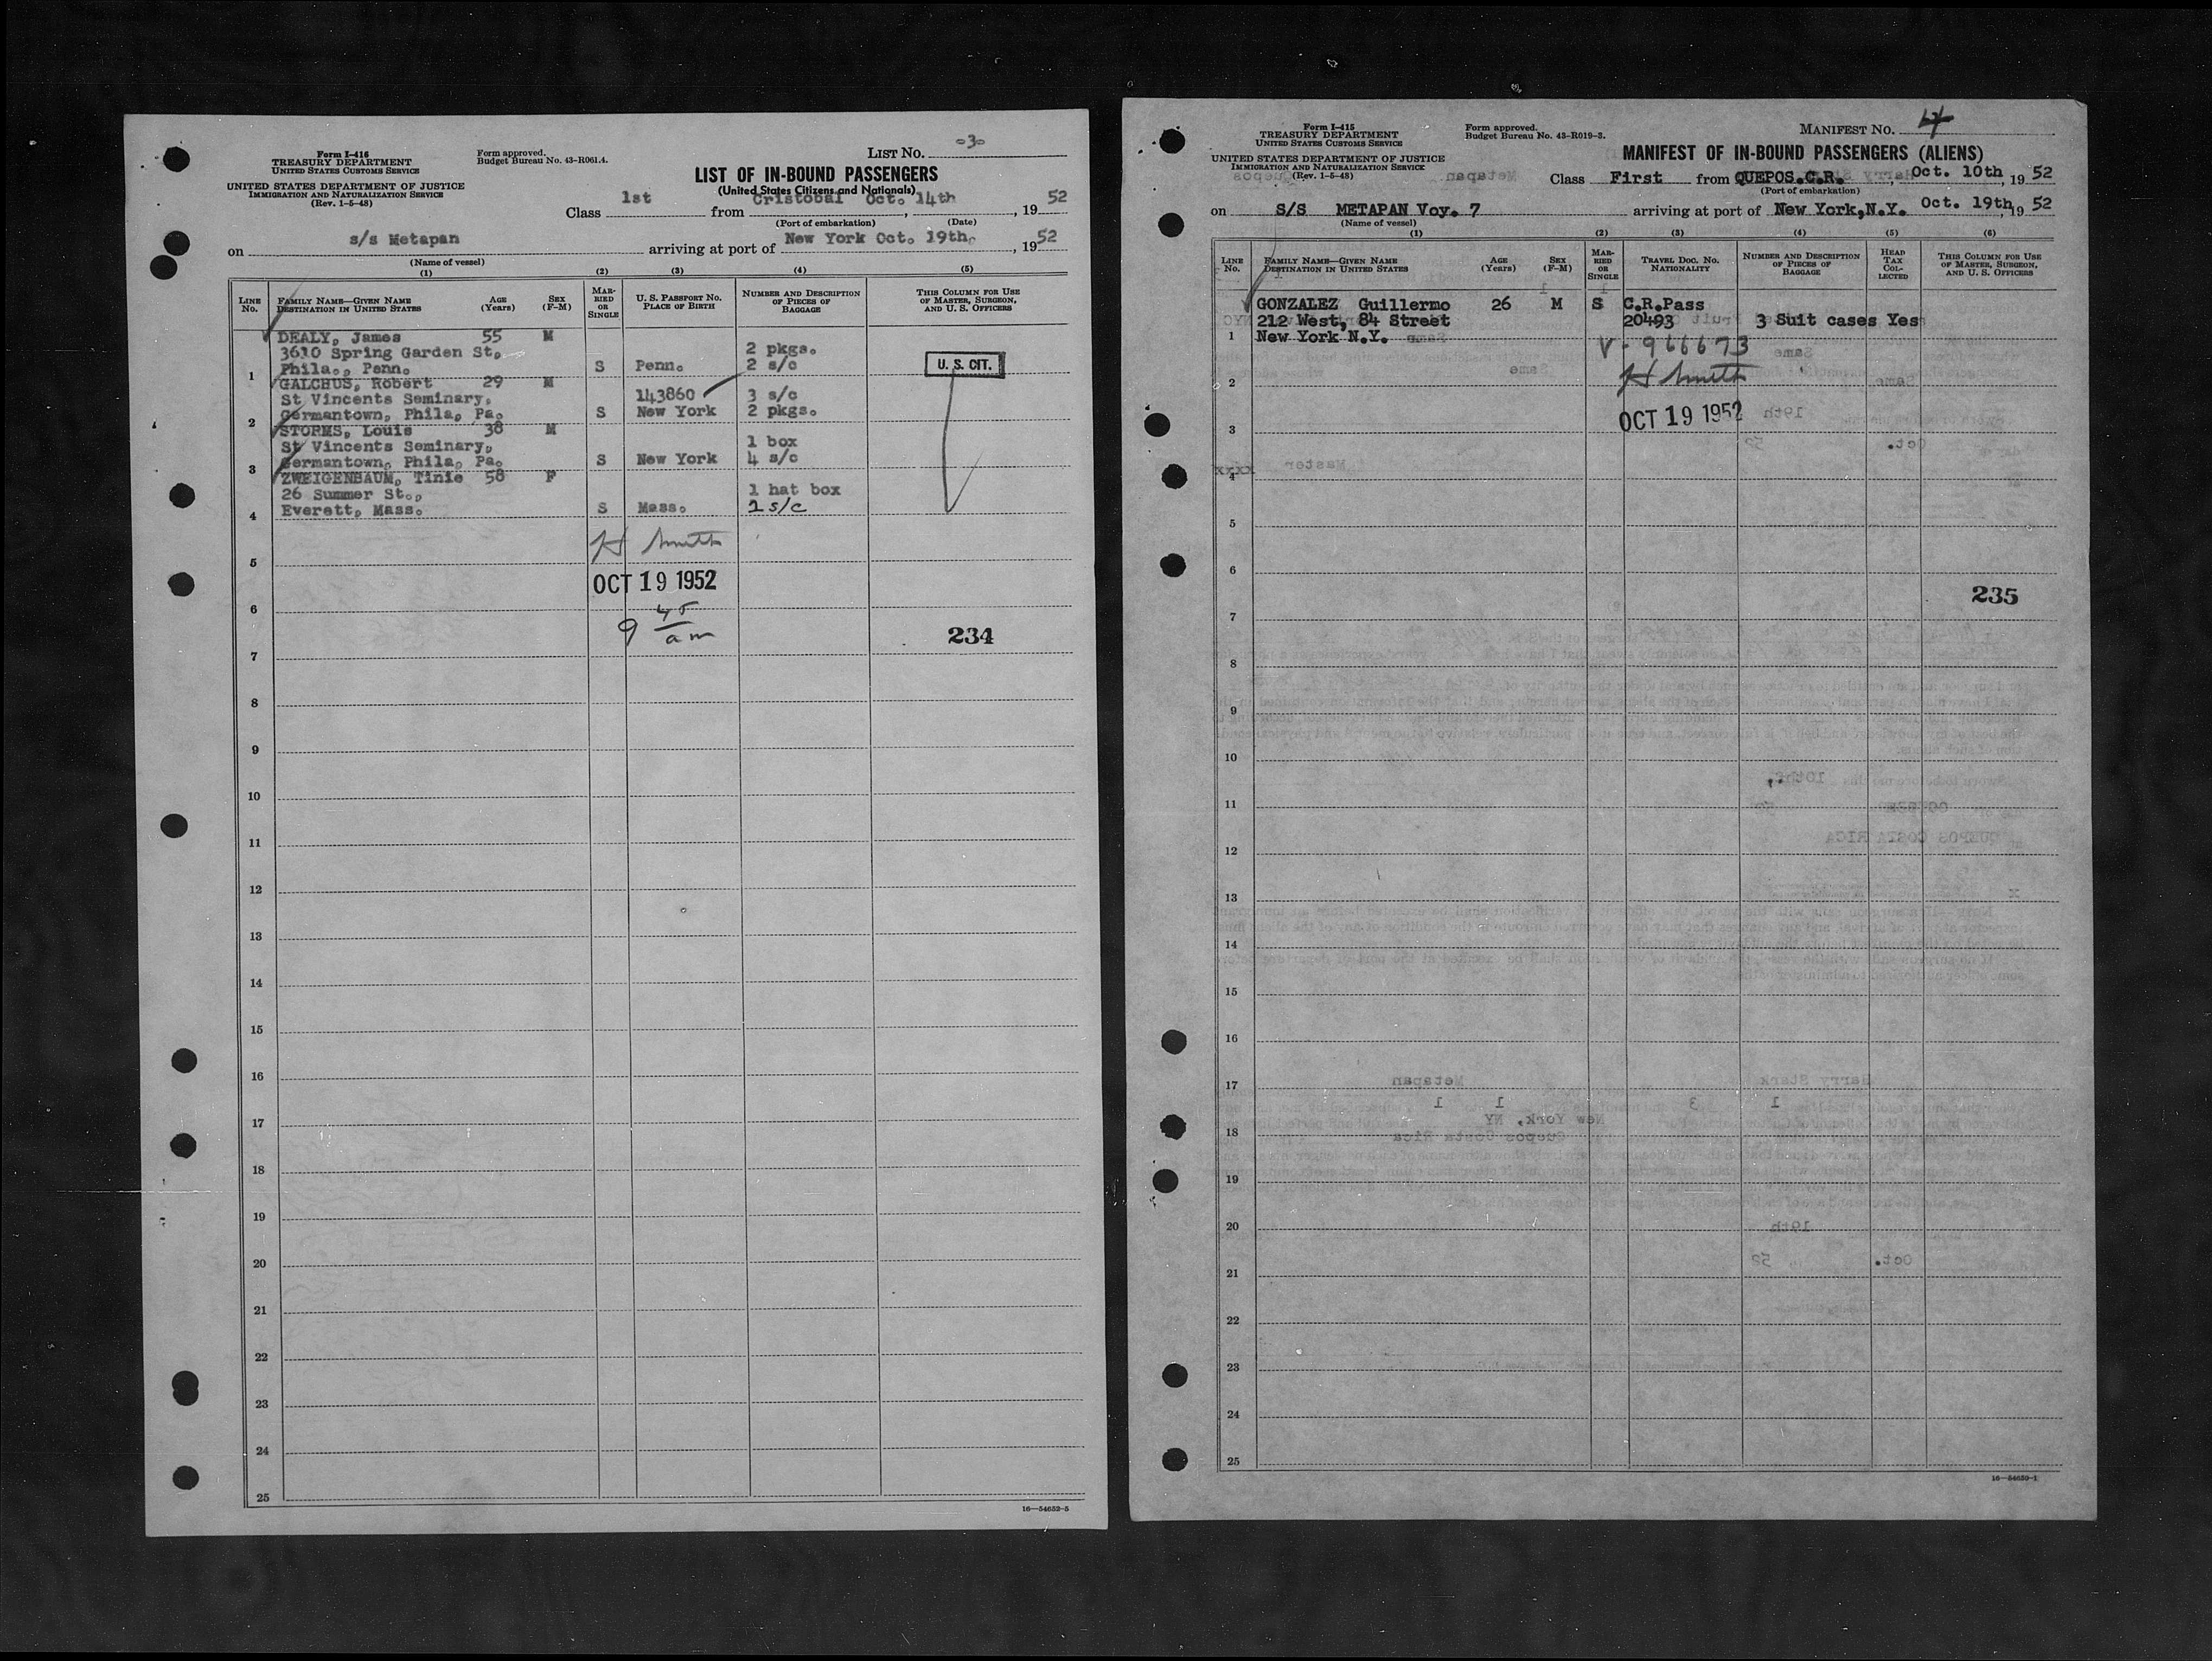 Form I-416
TREASURY DEPARTMENT
UNITED STATES CUSTOMS SERVICE
UNITED STATES DEPARTMENT OF JUSTICE
IMMIGRATION AND NATURALIZATION SERVICE
(Rev. 1-5-48)
Form approved.
Budget Bureau No. 43-R061.4.
LIST NO. -3-
LIST OF IN-BOUND PASSENGERS
(United States Citizens and Nationals)
Class 1st from Cristobal Oct. 14th, 19 52
(Port of embarkation) (Date)
on s/s Metapan arriving at port of New York Oct. 19th, 19 52
(Name of vessel)
(1) (2) (3) (4) (5)
LINE NO. FAMILY NAME—GIVEN NAME DESTINATION IN UNITED STATES AGE (Years) SEX (F-M) MARRIED OR SINGLE U. S. PASSPORT NO. PLACE OF BIRTH NUMBER AND DESCRIPTION OF PIECES OF BAGGAGE THIS COLUMN FOR USE OF MASTER, SURGEON, AND U. S. OFFICERS
DEALY, James 55 M
3610 Spring Garden St. 2 pkgs.
1 Phila., Penn. S Penn. 2 s/c U. S. CIT.
GALCHUS, Robert 29 M
St Vincents Seminary, 143860 3 s/c
2 Germantown, Phila, Pa. S New York 2 pkgs.
STORMS, Louis 38 M
St Vincents Seminary, 1 box
3 Germantown, Phila, Pa. S New York 4 s/c
ZWEIGENBAUM, Tinie 58 F
26 Summer St., 1 hat box
4 Everett, Mass. S Mass. 2 s/c
H Smith
5
OCT 19 1952
6
9 45 am
234
7
8
9
10
11
12
13
14
15
16
17
18
19
20
21
22
23
24
25
16—54652-5
Form I-415
TREASURY DEPARTMENT
UNITED STATES CUSTOMS SERVICE
UNITED STATES DEPARTMENT OF JUSTICE
IMMIGRATION AND NATURALIZATION SERVICE
(Rev. 1-5-48)
Form approved.
Budget Bureau No. 43-R019-3.
MANIFEST NO. 4
MANIFEST OF IN-BOUND PASSENGERS (ALIENS)
Class First from QUEPOS.C.R., Oct. 10th, 19 52
(Port of embarkation)
on S/S METAPAN Voy. 7 arriving at port of New York,N.Y. Oct. 19th, 19 52
(Name of vessel)
(1) (2) (3) (4) (5) (6)
LINE NO. FAMILY NAME—GIVEN NAME DESTINATION IN UNITED STATES AGE (Years) SEX (F-M) MARRIED OR SINGLE TRAVEL DOC. NO. NATIONALITY NUMBER AND DESCRIPTION OF PIECES OF BAGGAGE HEAD TAX COLLECTED THIS COLUMN FOR USE OF MASTER, SURGEON, AND U. S. OFFICERS
GONZALEZ Guillermo 26 M S C.R.Pass
212 West, 84 Street 20493 3 Suit cases Yes
1 New York N.Y.
V-966673
H Smith
2
OCT 19 1952
3
4
5
6
235
7
8
9
10
11
12
13
14
15
16
17
18
19
20
21
22
23
24
25
16—54650-1